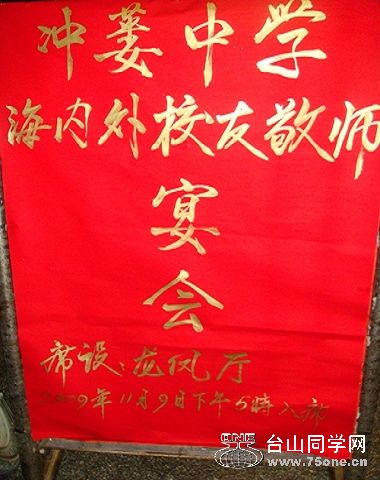 冲蒌中学
海内外校友敬师
宴
会
席设:龙凤厅
2009年11月9日下午5時入席
ONE
台山同学网
www.75one.cn